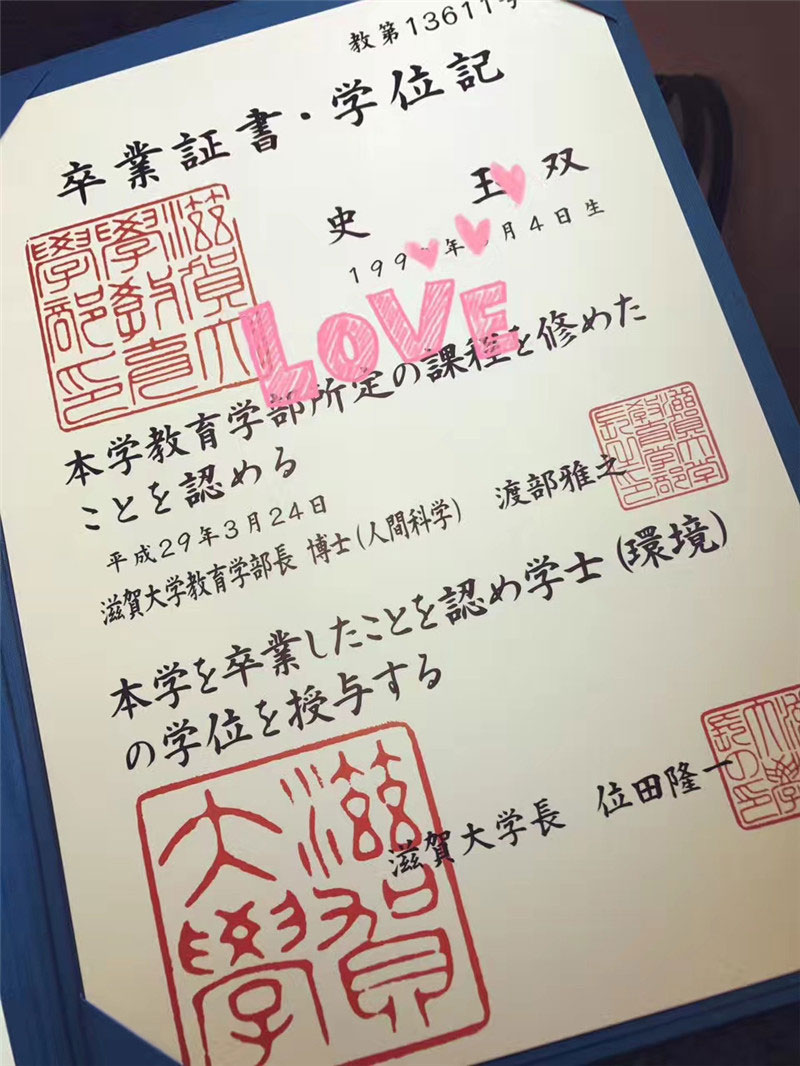 教第13611号
卒業証書・学位記
史 玉 双
199 年 月4日生
LOVE
本学教育学部所定の課程を修めた
ことを認める
平成29年3月24日
滋賀大学教育学部長 博士(人間科学) 渡部雅之
本学を卒業したことを認め学士(環境)
の学位を授与する
滋賀大学長 位田隆一
滋賀大學教育學部印
滋賀大学教育学部長之印
滋賀大學